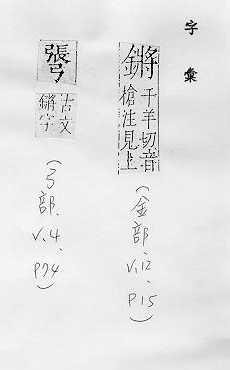 字彙
鏘
千羊切音
槍注見上
(金部、V.12、P.15)
古文
鏘字
(弓部、V.4、P74)